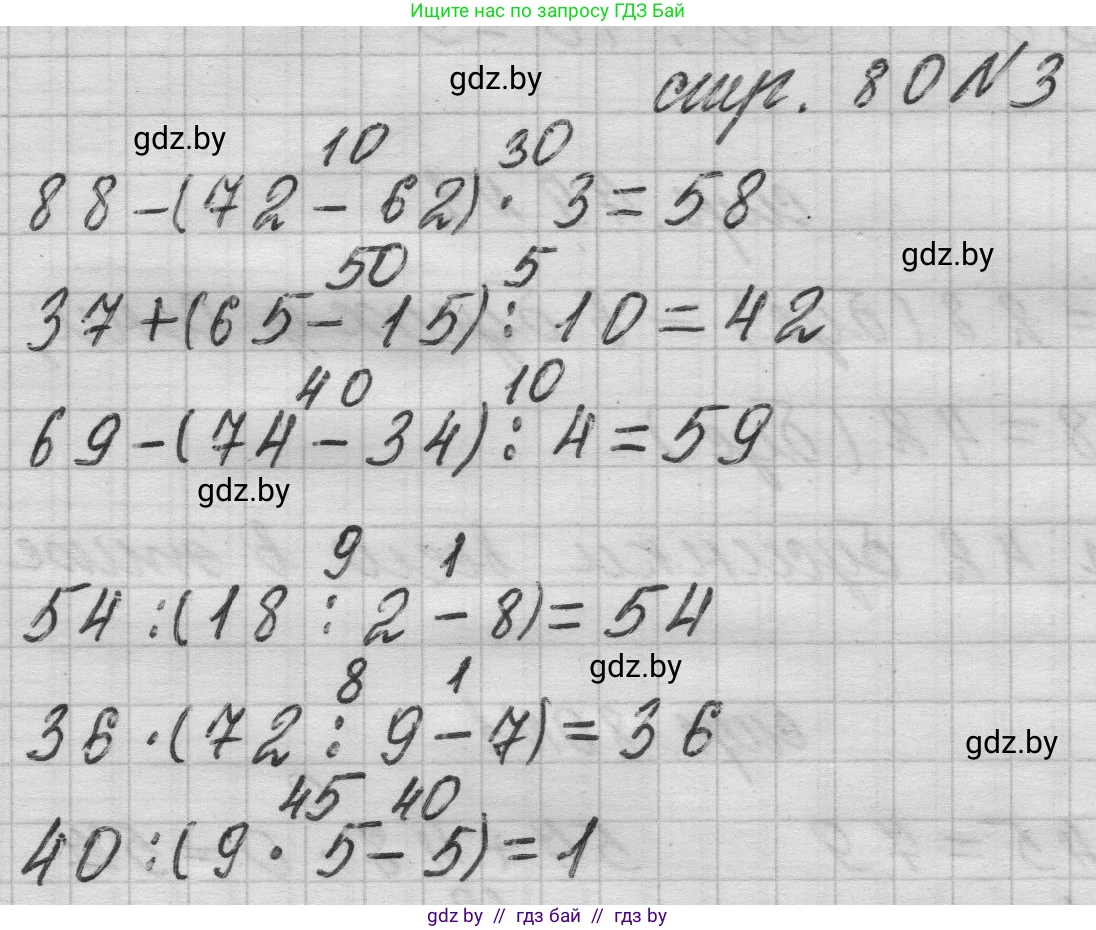 Ищите нас по запросу ГДЗ Бай
gdz.by стр. 80 № 3
gdz.by 10 30
88-(72-62)·3=58
gdz.by
50 5
37+(65-15):10=42
40 10
69-(74-34):4=59
gdz.by
9 1
54:(18:2-8)=54
gdz.by
8 1
36·(72:9-7)=36
gdz.by
45 40
40:(9·5-5)=1
gdz by // гдз бай // гдз by